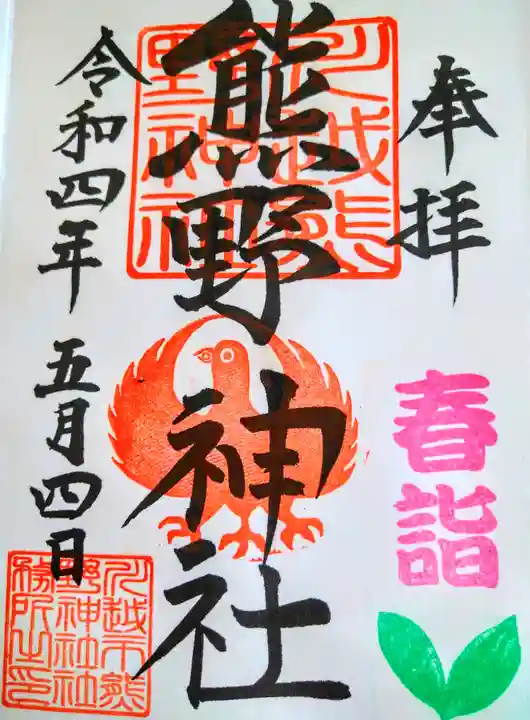 奉拝
春詣
川越熊野神社
熊野神社
令和四年 五月四日
川越市熊野神社社務所之印